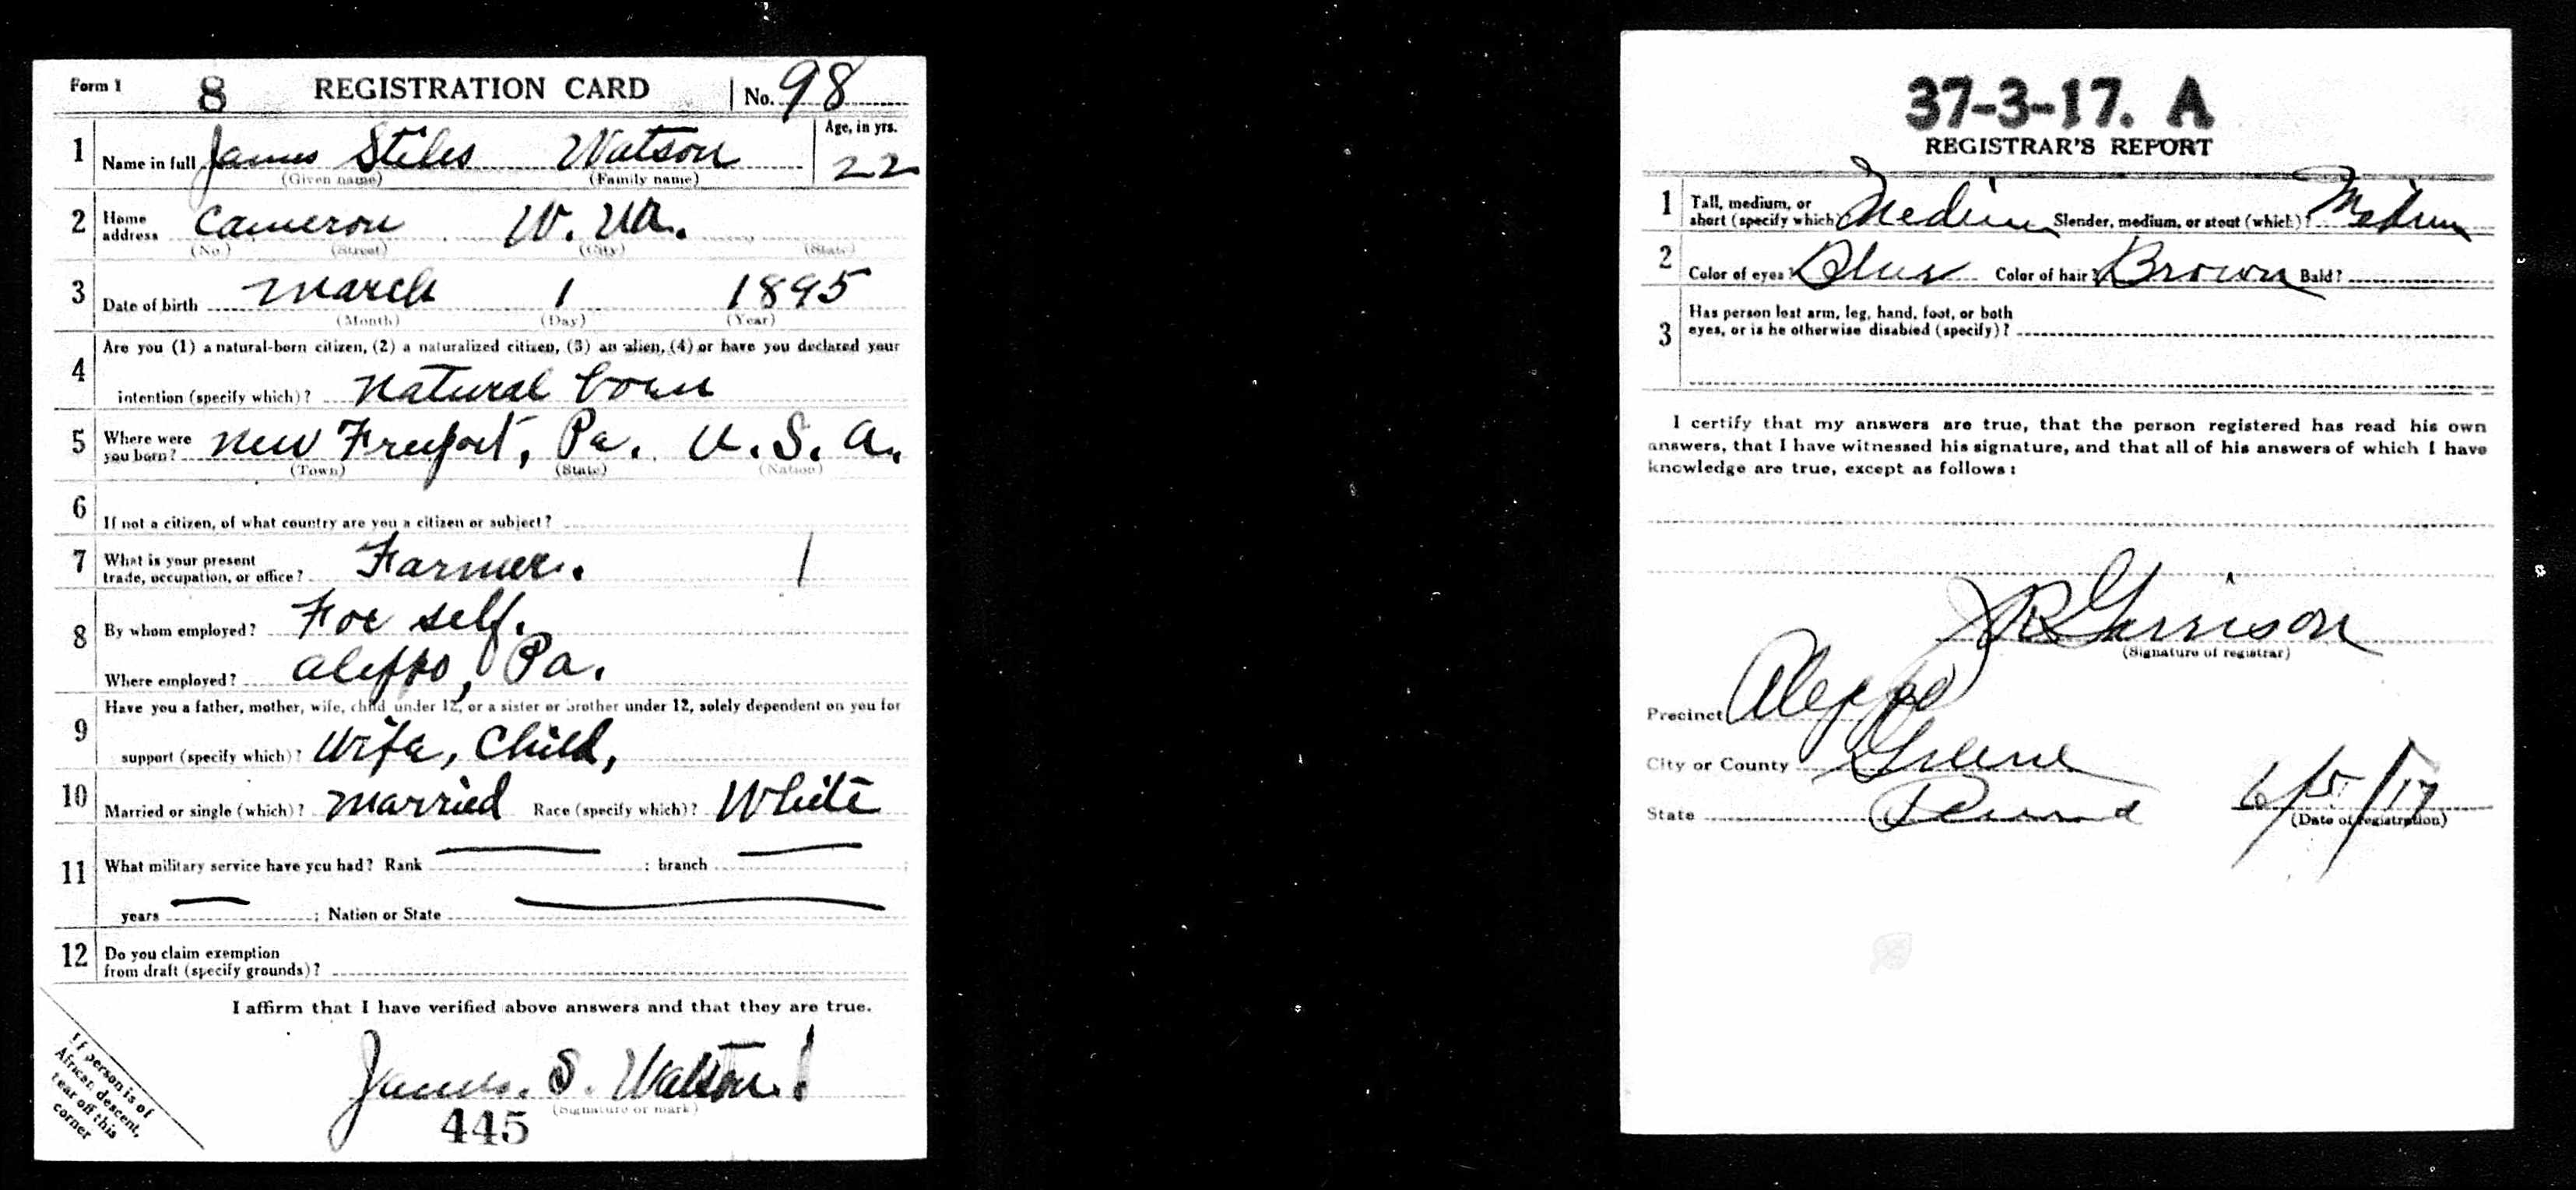 Form 1 8 REGISTRATION CARD No. 98
1 Name in full James Stiles Watson Age, in yrs. 22
(Given name) (Family name)
2 Home address Cameron W. Va.
(No.) (Street) (City) (State)
3 Date of birth March 1 1895
(Month) (Day) (Year)
4 Are you (1) a natural-born citizen, (2) a naturalized citizen, (3) an alien, (4) or have you declared your
intention (specify which)? Natural born
5 Where were you born? New Freeport, Pa. U.S.A.
(Town) (State) (Nation)
6 If not a citizen, of what country are you a citizen or subject?
7 What is your present trade, occupation, or office? Farmer. 1
8 By whom employed? For self.
Where employed? Aleppo, Pa.
9 Have you a father, mother, wife, child under 12, or a sister or brother under 12, solely dependent on you for
support (specify which)? Wife, Child,
10 Married or single (which)? Married Race (specify which)? White
11 What military service have you had? Rank ; branch ;
years ; Nation or State
12 Do you claim exemption
from draft (specify grounds)?
I affirm that I have verified above answers and that they are true.
James. S. Watson.
(Signature or mark)
445
If person is of
African descent,
tear off this
corner
37-3-17. A
REGISTRAR'S REPORT
1 Tall, medium, or short (specify which) Medium Slender, medium, or stout (which)? Medium
2 Color of eyes? Blue Color of hair? Brown Bald?
3 Has person lost arm, leg, hand, foot, or both
eyes, or is he otherwise disabled (specify)?
I certify that my answers are true, that the person registered has read his own
answers, that I have witnessed his signature, and that all of his answers of which I have
knowledge are true, except as follows:
J R Garrison
(Signature of registrar)
Precinct Aleppo
City or County Greene
State Penna 6/5/17
(Date of registration)